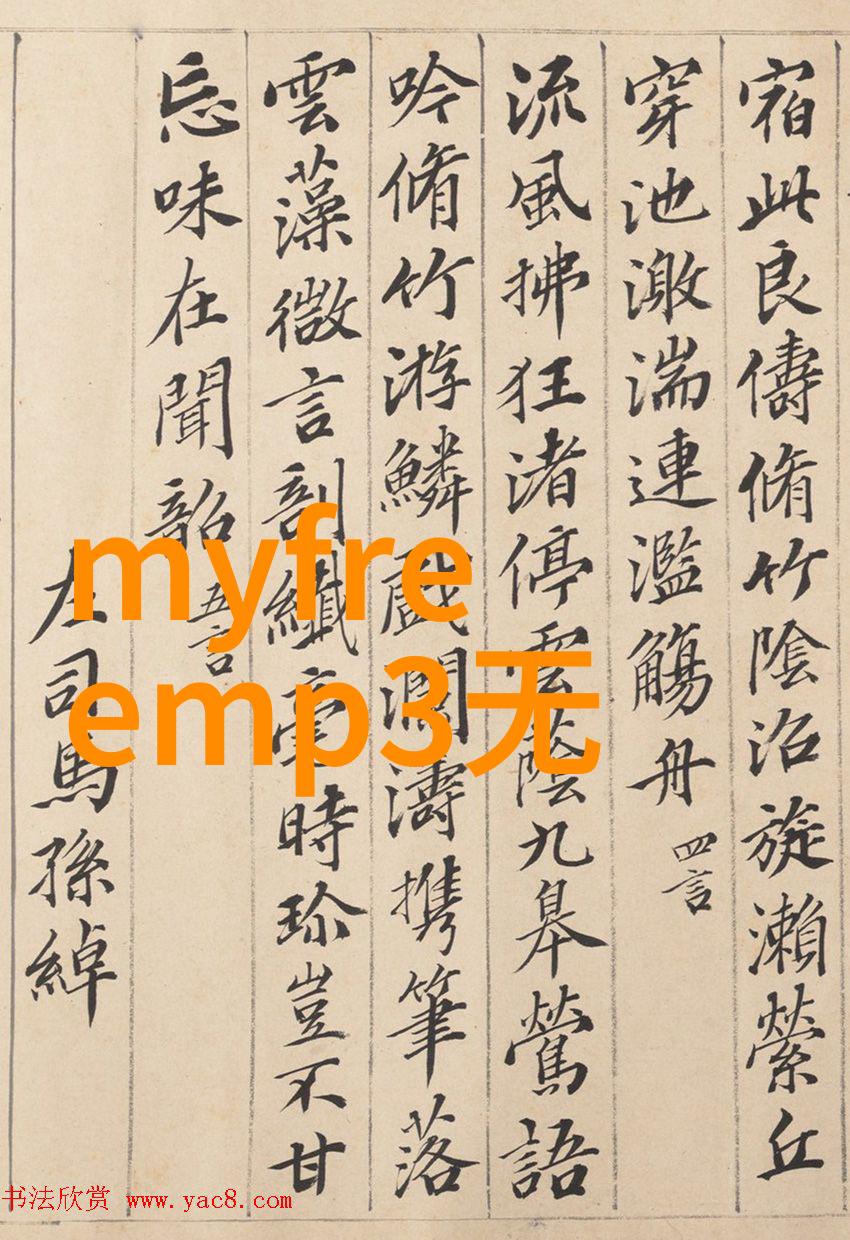 宿此良儔脩竹陰沼旋瀨縈丘
穿池激湍連濫觴舟 四言
流風拂狂渚停雲蔭九皋鶯語
吟脩竹游鱗戲瀾濤攜筆落
雲藻微言剖纖毫時珍豈不甘
忘味在聞韶 五言
左司馬孫綽
myfre
emp3无
书法欣赏 www.yac8.com